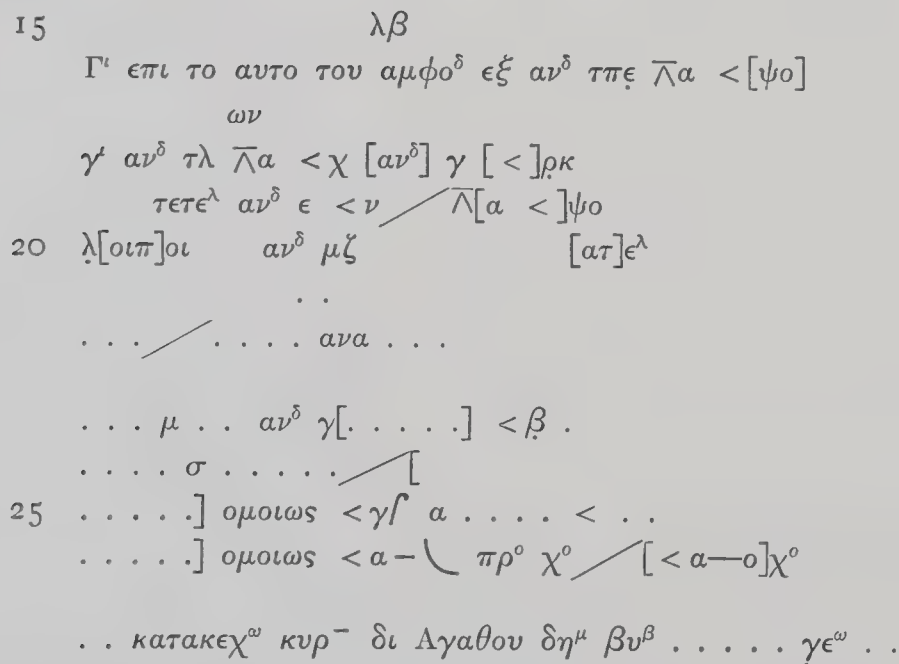 15 λβ
Γ^ι επι το αυτο του αμφο^δ εξ αν^δ τπε̣ Λ̅α <[ψο]
ων
γ^ι αν^δ τλ Λ̅α <χ [αν^δ] γ [<]ρ̣κ
τετε^λ αν^δ ε <ν ╱ Λ̅[α <]ψο
20 λ̣[οιπ]οι αν^δ μζ [ατ]ε^λ
. .
. . . ╱ . . . . ανα . . .
. . . μ . . αν^δ γ[. . . . .] <β̣ .
. . . . σ . . . . . ╱[
25 . . . . .] ομοιως <γ∫ α . . . . < . .
. . . . .] ομοιως <α–╰ πρ^ο χ^ο ╱[<α—ο]χ^ο
. . κατακεχ^ω κυρ^– δι Αγαθου δη^μ βυ^β . . . . . γε^ω . .